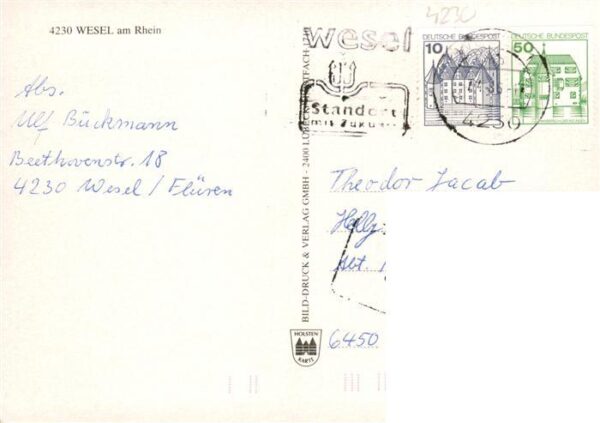 4230 WESEL am Rhein
Abs.
Ulf Bückmann
Beethovenstr. 18
4230 Wesel / Flüren
BILD-DRUCK & VERLAG GMBH - 2400 LÜBECK
4230
wesel
Standort
mit
DEUTSCHE BUNDESPOST
10
DEUTSCHE BUNDESPOST
50
4230
Theodor Jacab
Abt.
6450
HOLSTEN
KARTE